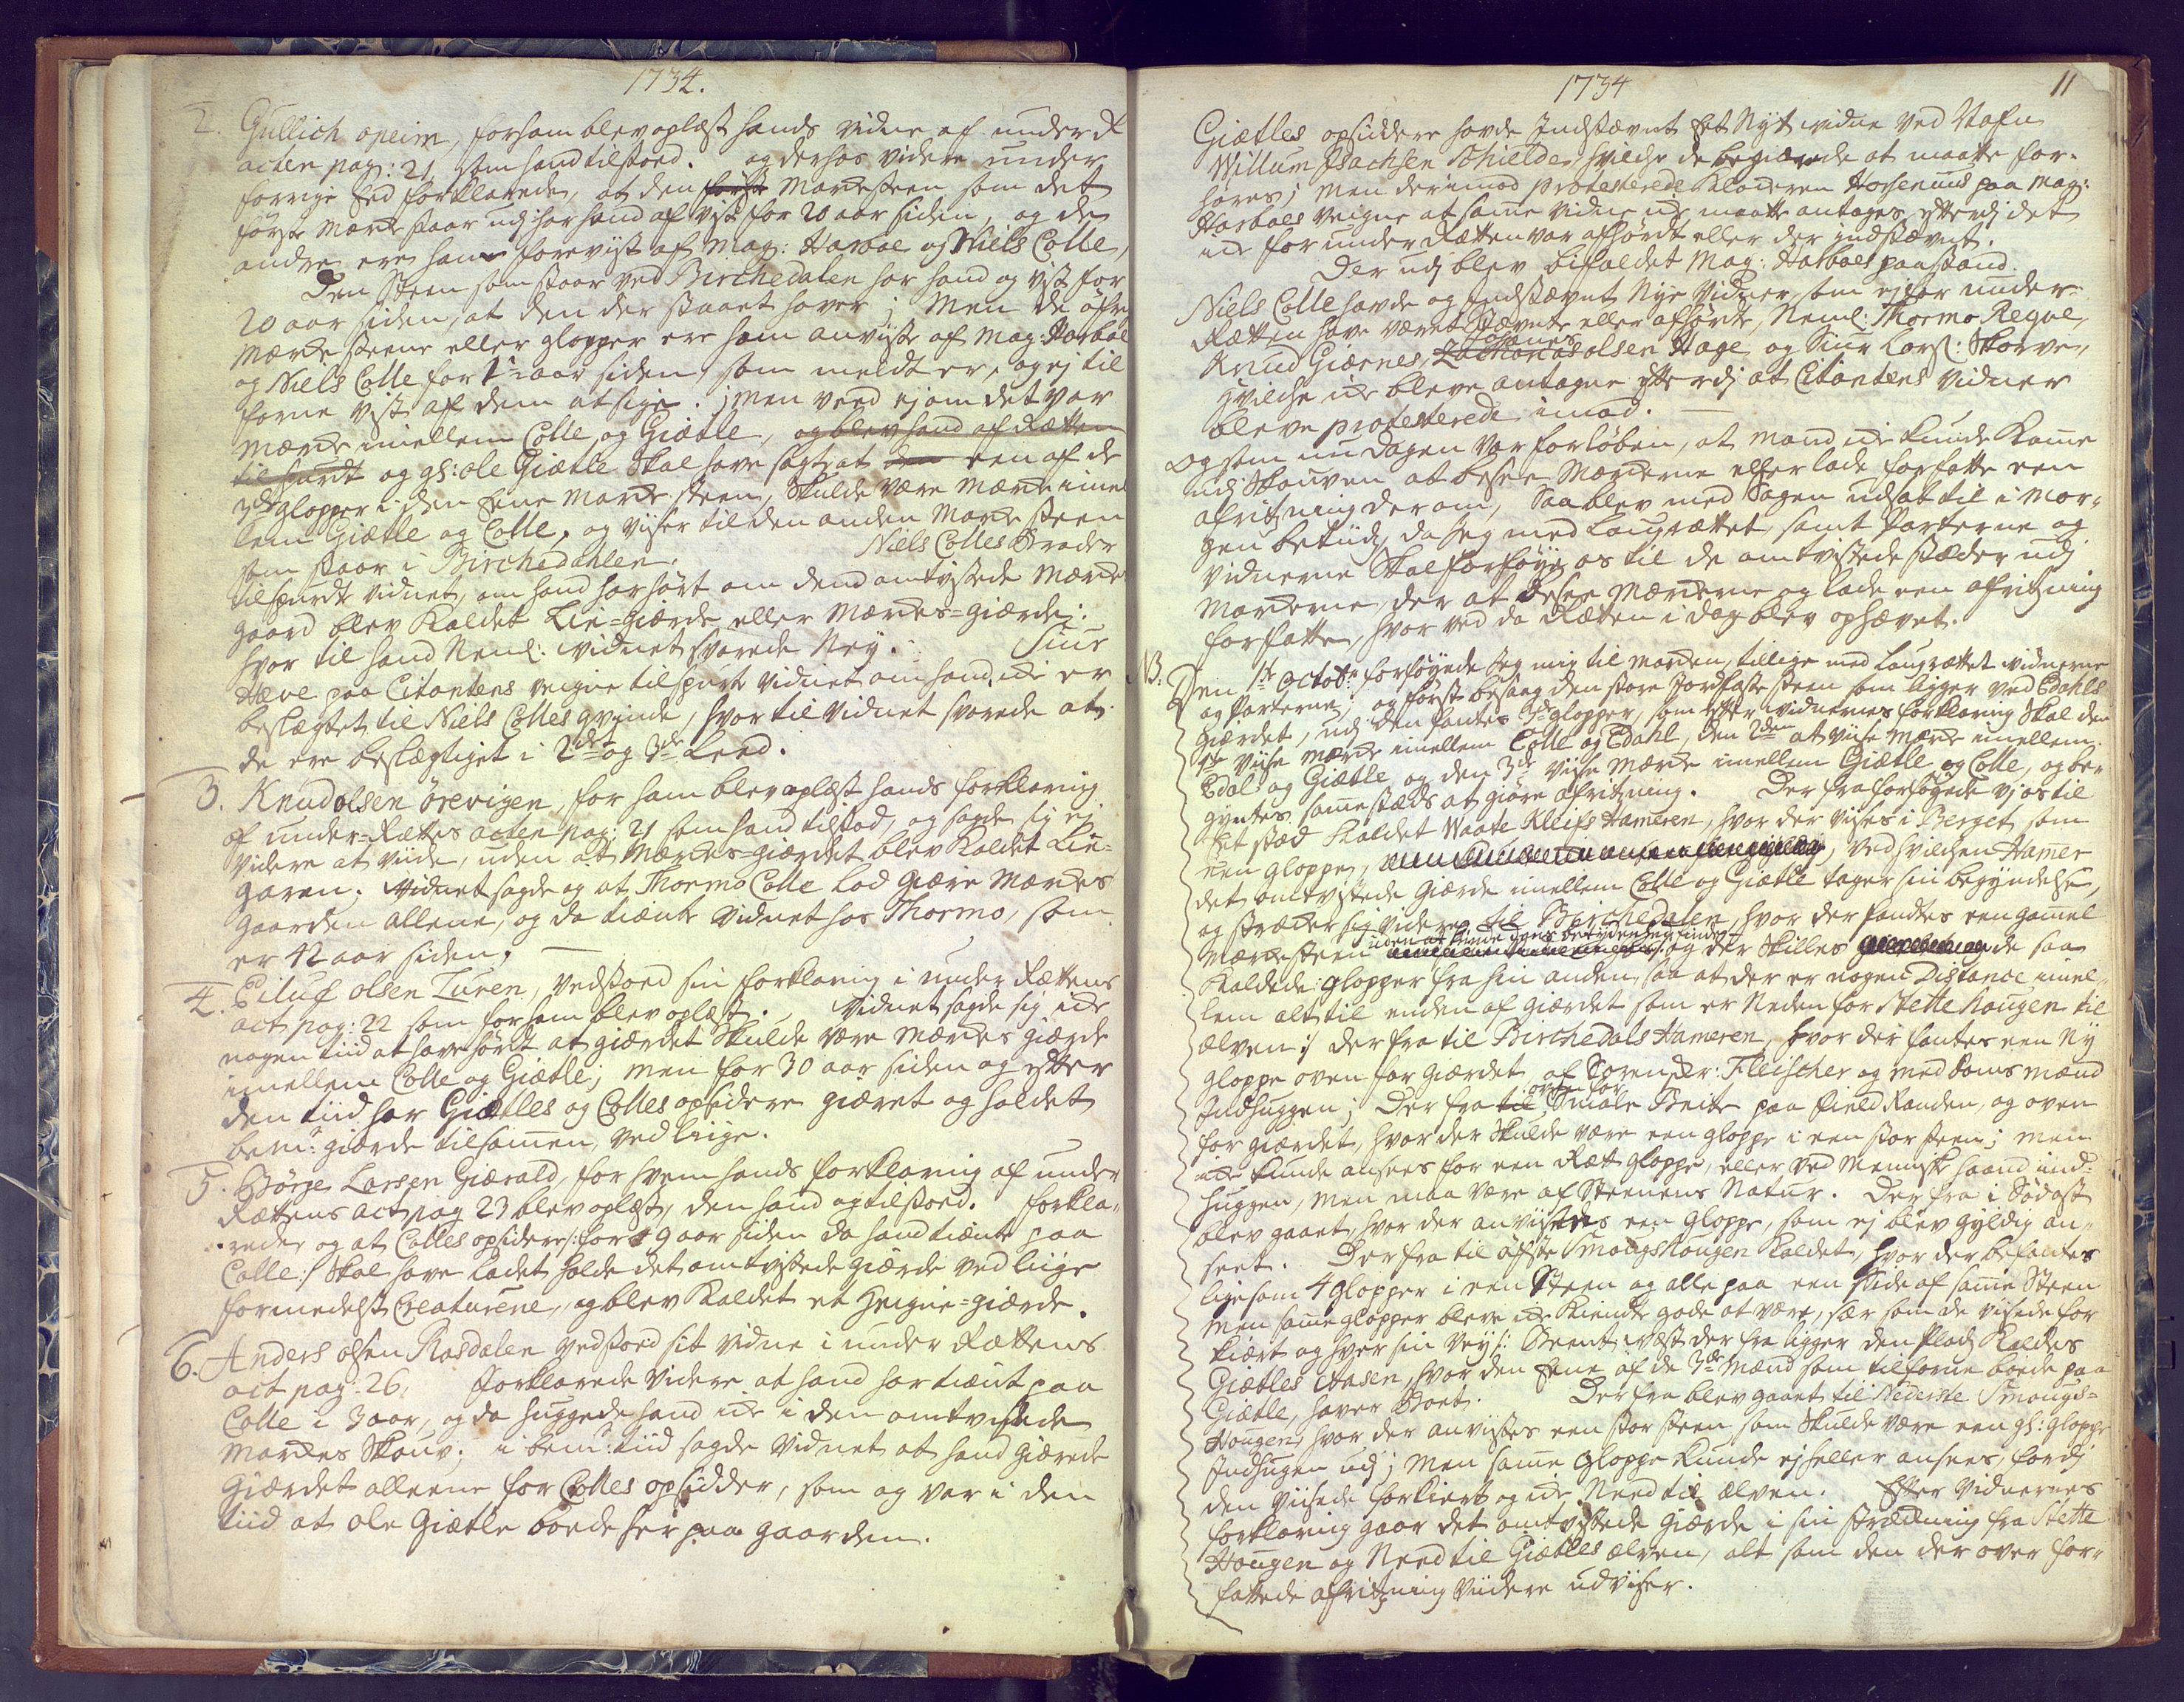 1734.
2. Gullich opeim, for ham blev oplæst hands vidne af under R
acten pag: 21, som hand tilstoed. og derhos videre under
forrige Eed forklarede, at den første Marcksteen som det
første Marck staar udj har hand af vist for 20 aar siden, og de
andre ere ham forevist af Mag: Harboe og Niels Colle,
Den Steen som staar ved Birchedalen har hand og vist for
20 aar siden, at den der staaet haver; Men de øfrige
Marcke steene eller glopper ere ham anviiste af Mag: Harboe
og Niels Colle for 1 aar siden, som meldt er, og ej til
forne vist af dem at sige; men veed ej om det var
Marcke imellem Colle og Giætle, og blev hand af Retten
til spurdt og gl: ole Giætle skal have sagt, at den een af de
3de glopper i den Eene Marcke steen, skulde være Marcke imel
lem Giætle og Colle, og viiser til den anden Marcke steen
som staar i Birchedahlen. Niels Colles Broder
tilspurdte vidnet, om hand har hørt om dend omtvistede Marcke
gaard blev kaldet Lie-giærde eller Marckes-giærde:
hvor til hand Neml: vidnet svarede Ney. Siur
Hæve paa Citantens veigne tilspurte vidnet om hand icke er
beslægtet til Niels Colles qvinde, hvor til vidnet svarede at
de ere beslegtiget i 2det og 3die Leed.
3. Knud olsen örevigen, for ham blev oplæst hands forklaring
af under-Rettes acten pag: 21 som hand tilstod, og sagde sig ej
videre at viide, uden at Marckes-giærdet blev kaldet Lie-
garen. Vidnet sagde og at Thormo Colle lod giære Marckes
gaarden allene, og da tiente vidnet hos Thormo, som
er 42 aar siden.
4. Eiluf olsen Turen, vedstoed sin forklaring i under Rettens
act pag: 22 som for ham blev oplæst. Vidnet sagde sig icke
nogen tiid at have hørt at giærdet skulde være Marckes giærde
imellem Colle og Giætle; men for 30 aar siden og efter
den tiid har Giætles og Colles opsidere giæret og holdet
bem:te giærde tilsammen ved liige.
5. Börge Larsen Giærald, for hvem hands forklaring af under
Rettens act pag 23 blev oplæst, den hand og tilstoed. forkla-
rede, og at Colles opsidere /: for 9 aar siden da hand tiente paa
Colle :/ skal have ladet holde det omtvistede giærde ved liige
formedelst Creaturene, og blev kaldet et Heigne-giærde.
6. Anders olsen Rasdalen vedstoed sit vidne i under Rettens
act pag: 26, forklarede videre at hand har tient paa
Colle i 3 aar, og da huggede hand icke i den omtvistede
Marckes skouv; i bem:te tiid sagde vidnet at hand giærede
giærdet alleene for Colles opsidder, som og var i den
tiid at ole Giætle boede her paa gaarden.
1734
11
Giætles opsiddere havde Indstævnt Et Nyt vidne ved Nafn
Willum Isachsen Schielde, hvilche de begiærede at maatte for-
høres; men derimod protesterede Klageren Hosenius paa Mag:
Harboes veigne at same vidne icke maatte antages, efterdj det
icke for under Retten var afhørdt eller der indstævnt.
Der udj blev bifaldet Mag: Harboes paastand.
Niels Colle havde og Indstævnt Nye vidner, som ej for under-
Retten have været stævnte eller afhørte, Neml: Thormo Reqve,
Knud Giærnes, Zacharias Johanes olsen Hage og Siur Lars: Skorve,
Hvilche icke bleve antagne efterdj at Citantens vidner
bleve protesterede imod.
og som nu dagen var forløben, at mand icke kunde kome
udj skouven at besee Marckerne eller lade forfatte een
afritzning derom, saa blev med Sagen udsat til i mor-
gen betiids, da Jeg med Laugrettet, samt Parterne og
Vidnerne skal forføye os til de omtvistede stæder udj
Marckerne, der at besee Marckerne og lade een afritzning
forfatte, hvor ved da Retten i dag blev ophævet.
Den 1te octobr forføyede Jeg mig til Marcken, tillige med Laugrettet vidnerne
og Parterne; og først besaag den store Jordfaste steen som ligger ved Edahls
giærdet, udj den fantes 3de glopper, som efter vidnernes forklaring skal den
1te viise Marcke imellem Colle og Edahl, den 2den at viise Marcke imellem
Edal og Giætle og den 3de viise Marcke imellem Giætle og Colle, og be-
gyntes samestæds at giøre afritzning. Der fra forføyede vj os til
Et stæd kaldet Waate Kleifs Hameren, hvor der viises i Berget, som
een gloppe, ved hvilchen Hamer
det omtvistede giærde imellem Colle og Giætle tager sin begyndelse,
og strecker sig videre til Birchedalen, hvor der fandtes een gamel
Marckesteen uden at kunde dens betydenhed finde og der skilles de saa
kaldede glopper fra hin anden, saa at der er nogen Distance imel-
lem alt til enden af giærdet som er Neden for Stette haugen til
elven :/ der fra til Birchedals Hameren, hvor der fantes een Ny
gloppe oven for giærdet af Sorenskr: Fleischer og med Doms mænd
Indhuggen; Der fra til oven for Smale Beite paa field Randen, og oven
for giærdet, hvor der skulde være een gloppe i een stor steen; men
icke kunde ansees for een Ret gloppe, eller ved Menniske haand ind-
huggen, men maa være af Steenens Natur. Der fra i Sødost
blev gaaet, hvor der anviistes een gloppe, som ej blev gyldig an-
seet. Der fra til øfste Smaugshougen kaldet, hvor der befantes
lige som 4 glopper i een Steen og alle paa een side af same Steen
Men same glopper bleve icke kiendte gode at være, sær som de viisede for
kiert og hver sin vey: Beent vest der fra ligger den Plads kaldes
Giætles Aasen, hvor den Eene af de 3de Mænd som tilforne boede paa
Giætle, haver Boet. Der fra blev gaaet til Nederste Smaugs-
Hougen, hvor der anviistes een stor steen, som skulde være een gl: gloppe
Indhugen udj; Men same gloppe kunde ej heller ansees, fordj
den viisede forkiert og icke Need til elven. Efter vidnernes
forklaring gaar det omtvistede giærde i sin streckning fra Stette
Hougen og Need til Giætles elven, alt som den der over for-
fattede afritzning viidere udviiser.